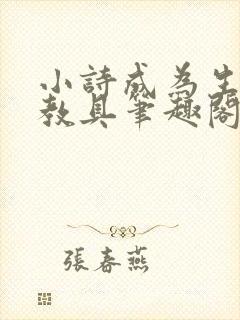 小詩成為生
教具筆趣閣
張春燕